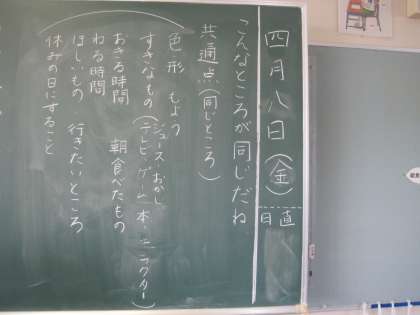 四月八日(金)
日直
こんなところが同じだね
共通点(同じところ)
色 形 もよう
すきなもの(ジュース・おかし
テレビ・ゲーム・本・キャラクター)
おきる時間 朝食べたもの
ねる時間
ほしいもの 行きたいところ
休みの日にすること